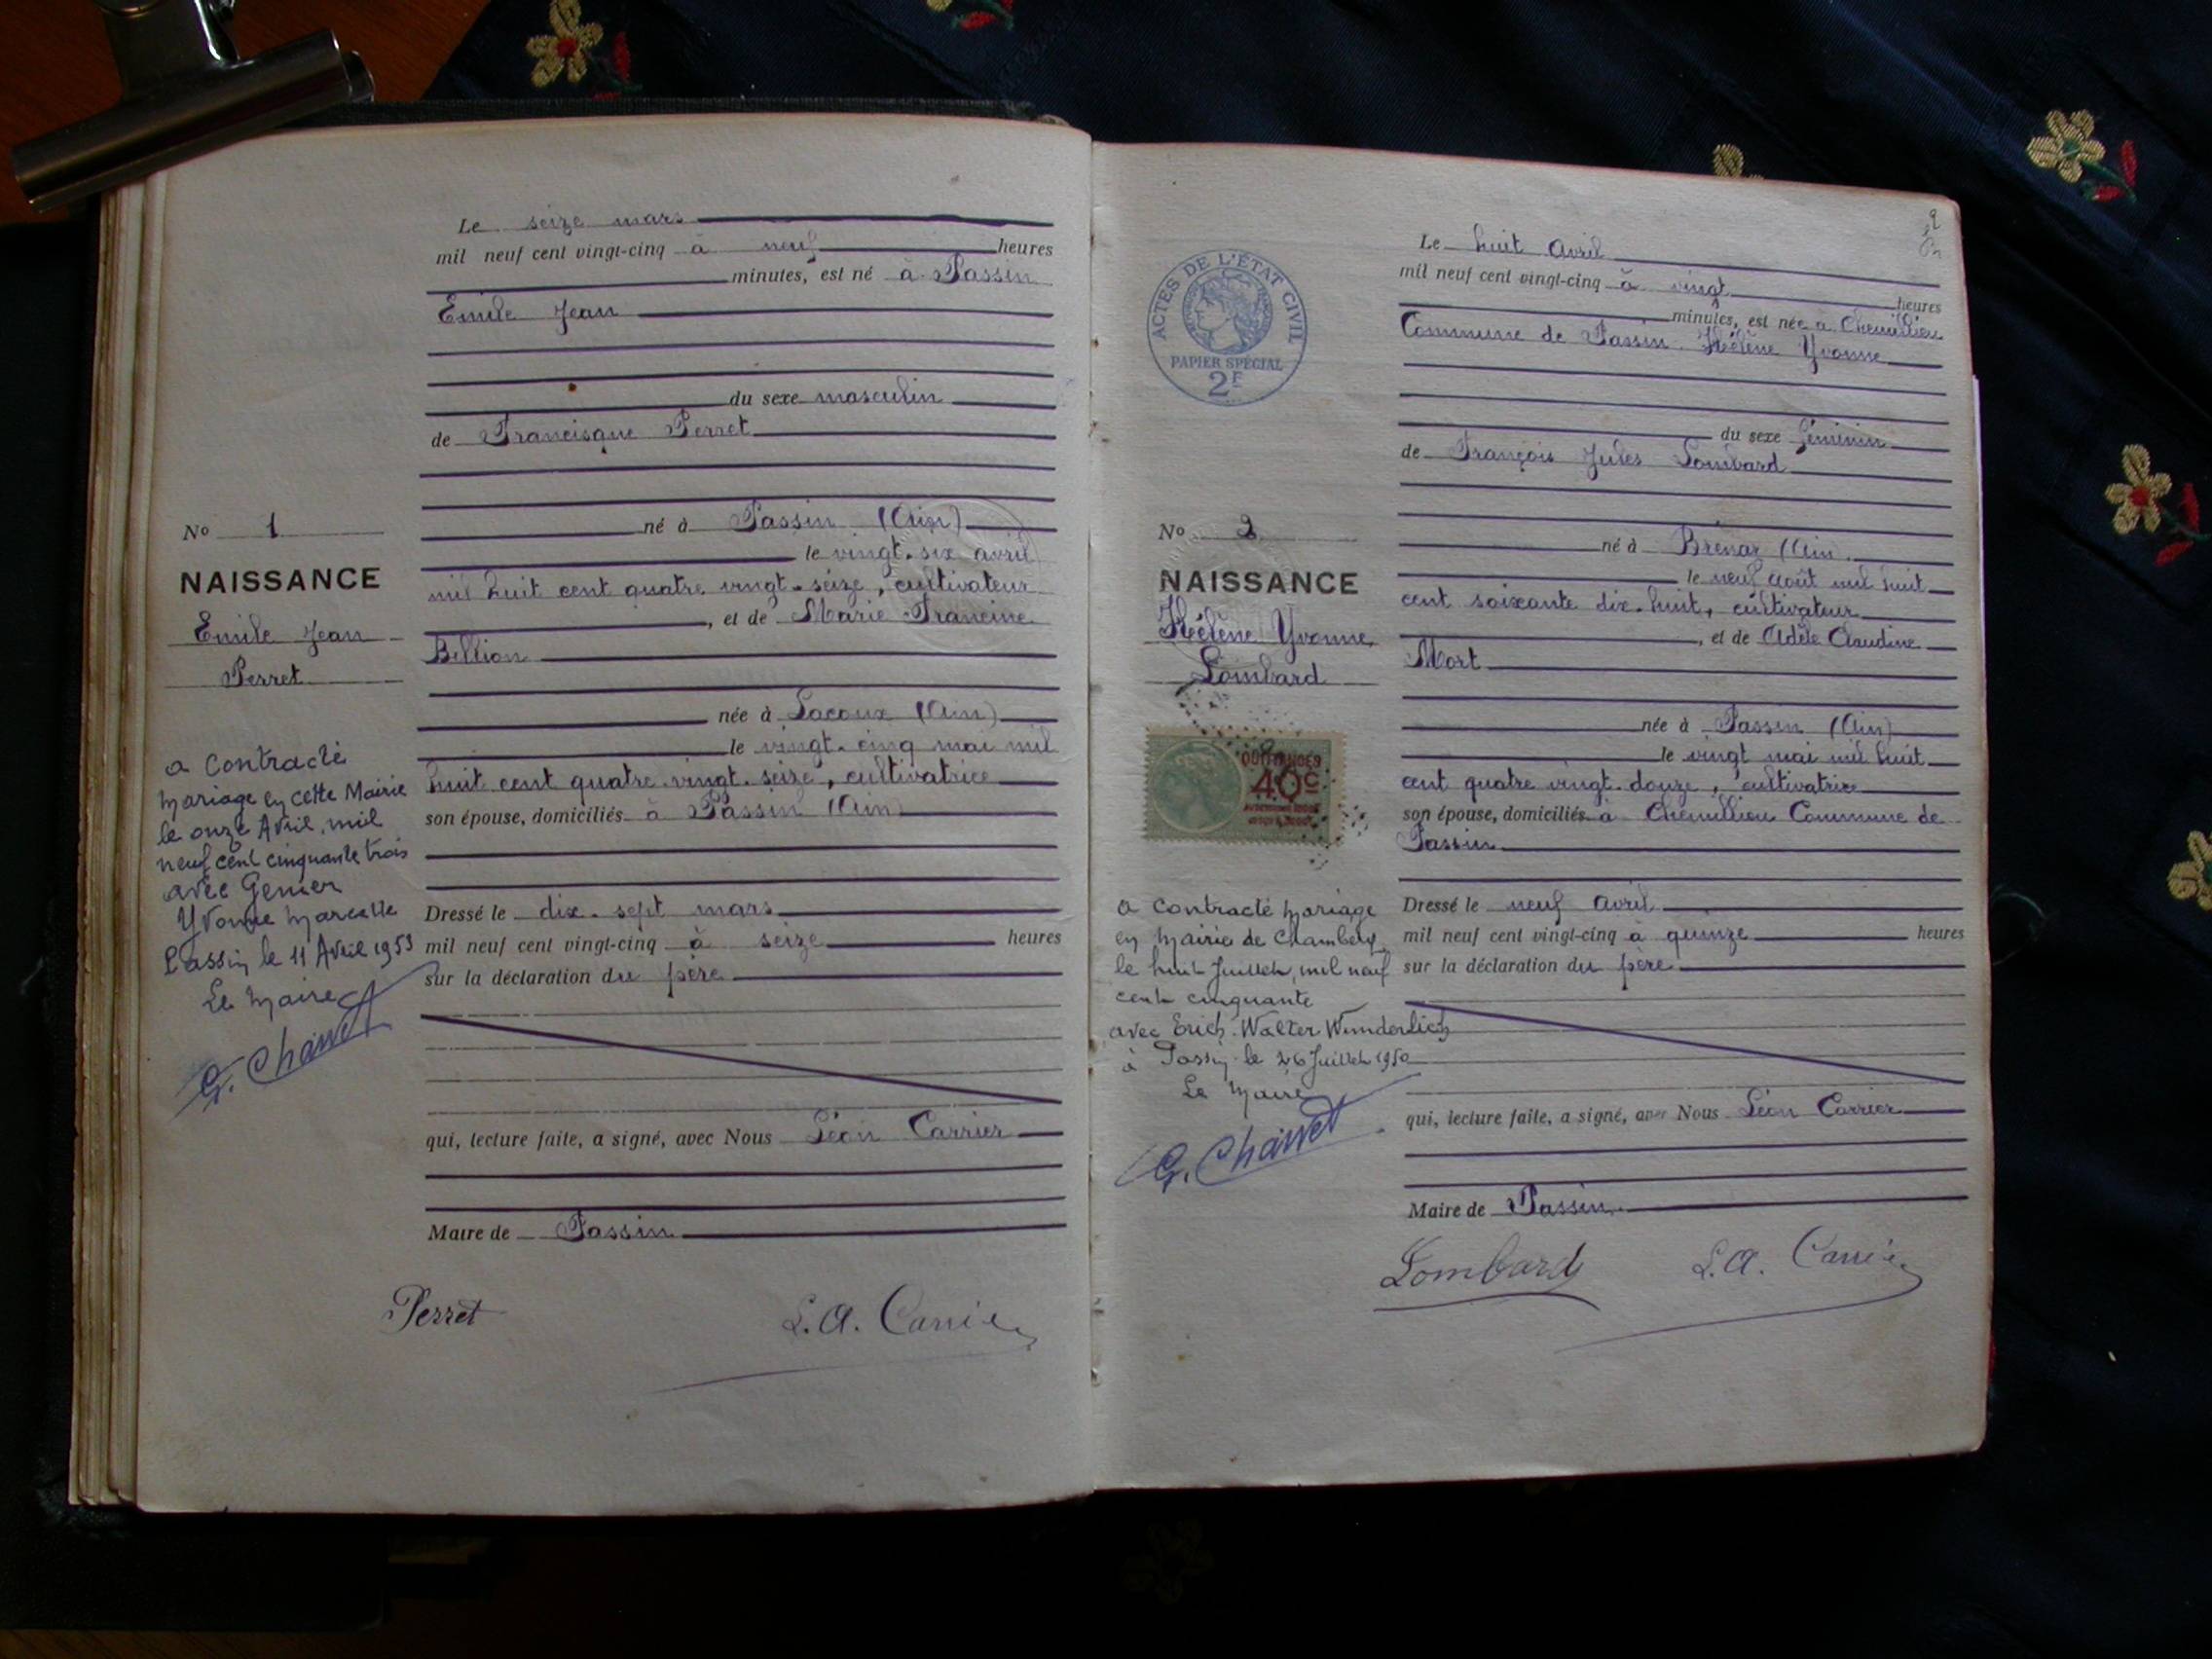 Le seize mars
mil neuf cent vingt-cinq à neuf heures
minutes, est né à Passin
Emile Jean
du sexe masculin
de Francisque Perret
né à Passin (Ain)
le vingt-six avril
mil huit cent quatre vingt-seize, cultivateur
, et de Marie Francine
Billion
née à Lacoux (Ain)
le vingt-cinq mai mil
huit cent quatre-vingt-seize, cultivatrice
son épouse, domiciliés à Passin (Ain)
Dressé le dix-sept mars
mil neuf cent vingt-cinq à seize heures
sur la déclaration du père
qui, lecture faite, a signé, avec Nous Léon Carrier
Maire de Passin
Perret L.A. Carrier
No 1
NAISSANCE
Emile Jean
Perret
a contracté
mariage en cette Mairie
le onze Avril mil
neuf cent cinquante trois
avec Genier
Yvonne Marcelle
Passin le 11 Avril 1953
Le Maire
G. Charvet
2
ACTES DE L'ÉTAT CIVIL
PAPIER SPÉCIAL
2F
Le huit Avril
mil neuf cent vingt-cinq à vingt heures
minutes, est née à Chemillieu
Commune de Passin Hélène Yvonne
du sexe féminin
de François Jules Lombard
né à Brénaz (Ain)
le neuf Août mil huit
cent soixante dix-huit, cultivateur
, et de Adèle Claudine
Mort
née à Passin (Ain)
le vingt mai mil huit
cent quatre vingt-douze, cultivatrice
son épouse, domiciliés à Chemillieu Commune de
Passin
Dressé le neuf Avril
mil neuf cent vingt-cinq à quinze heures
sur la déclaration du père
qui, lecture faite, a signé, avec Nous Léon Carrier
Maire de Passin
Lombard L.A. Carrier
No 2
NAISSANCE
Hélène Yvonne
Lombard
QUITTANCES
40c
a contracté mariage
en Mairie de Chambéry
le huit Juillet mil neuf
cent cinquante
avec Erich Walter Wunderlich
à Passin le 26 Juillet 1950
Le Maire
G. Charvet